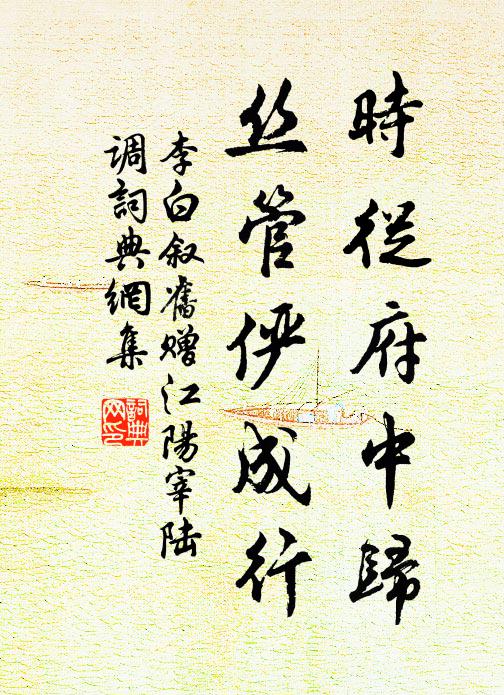 時從府中歸
丝管俨成行
李白叙舊赠江陽宰陆
调詞典網集
詞典
网印